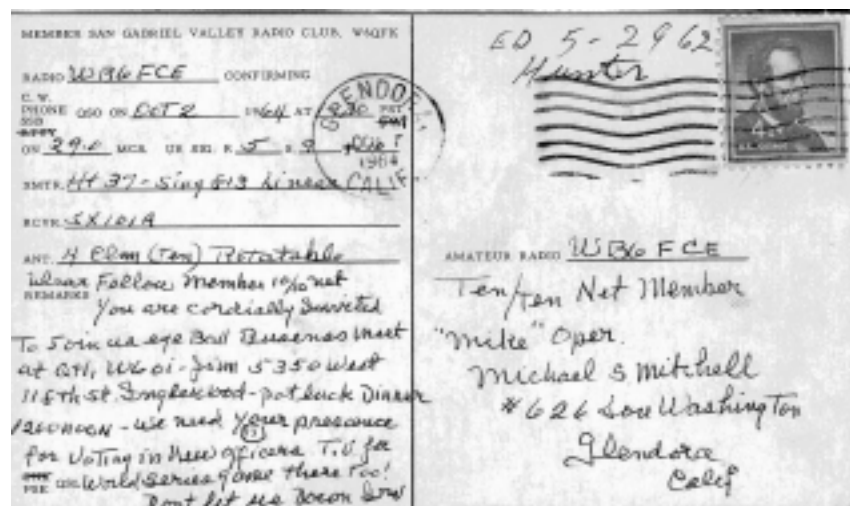 MEMBER SAN GABRIEL VALLEY RADIO CLUB, W6QFK
RADIO WB6FCE CONFIRMING
C. W.
PHONE QSO ON OCT 2 1964 AT PST
SSB
ON 29.0 MCS. UR SIG. R 5 S 9
XMTR. HT 37 - Sing 813 Linear
RCVR. SX101A
ANT. 4 Elm (Ten) Rotatable
REMARKS Fellow Member 10/10 net
You are cordially Invited
To Join us eye Ball Business Meet
at QTH, W6 Jim 5350 West
118th st. Inglewood - pot luck Dinner
1200 NOON - we need your presance
for Voting in New officers T.V. for
World Series game there Too!
PSE QSL
Dont let us Down
GLENDORA
OCT
1964
CALIF.
ED 5-2962
Hunter
4¢
AMATEUR RADIO WB6FCE
Ten/Ten Net Member
"Mike" Oper.
Michael S Mitchell
#626 Washington
Glendora
Calif